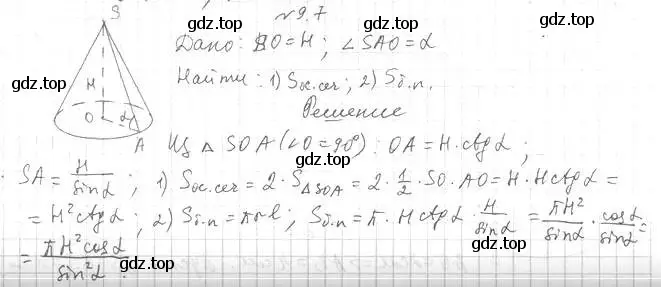 S
N9.7
gdz.top
Дано: SO=H; ∠SAO=α
gdz.top
Найти: 1) Sос.сеч; 2) Sб.п.
H
gdz.top
Решение
O α
A
Из △SOA (∠O=90°): OA=H·ctgα;
gdz.top
SA=H/sinα; 1) Sос.сеч=2·S△SOA=2·1/2·SO·AO=H·Hctgα=
=H²ctgα; 2) Sб.п=πrl; Sб.п=π·Hctgα·H/sinα=πH²/sinα·cosα/sinα=
gdz.top
=πH²cosα/sin²α.
gdz.top
gdz.top